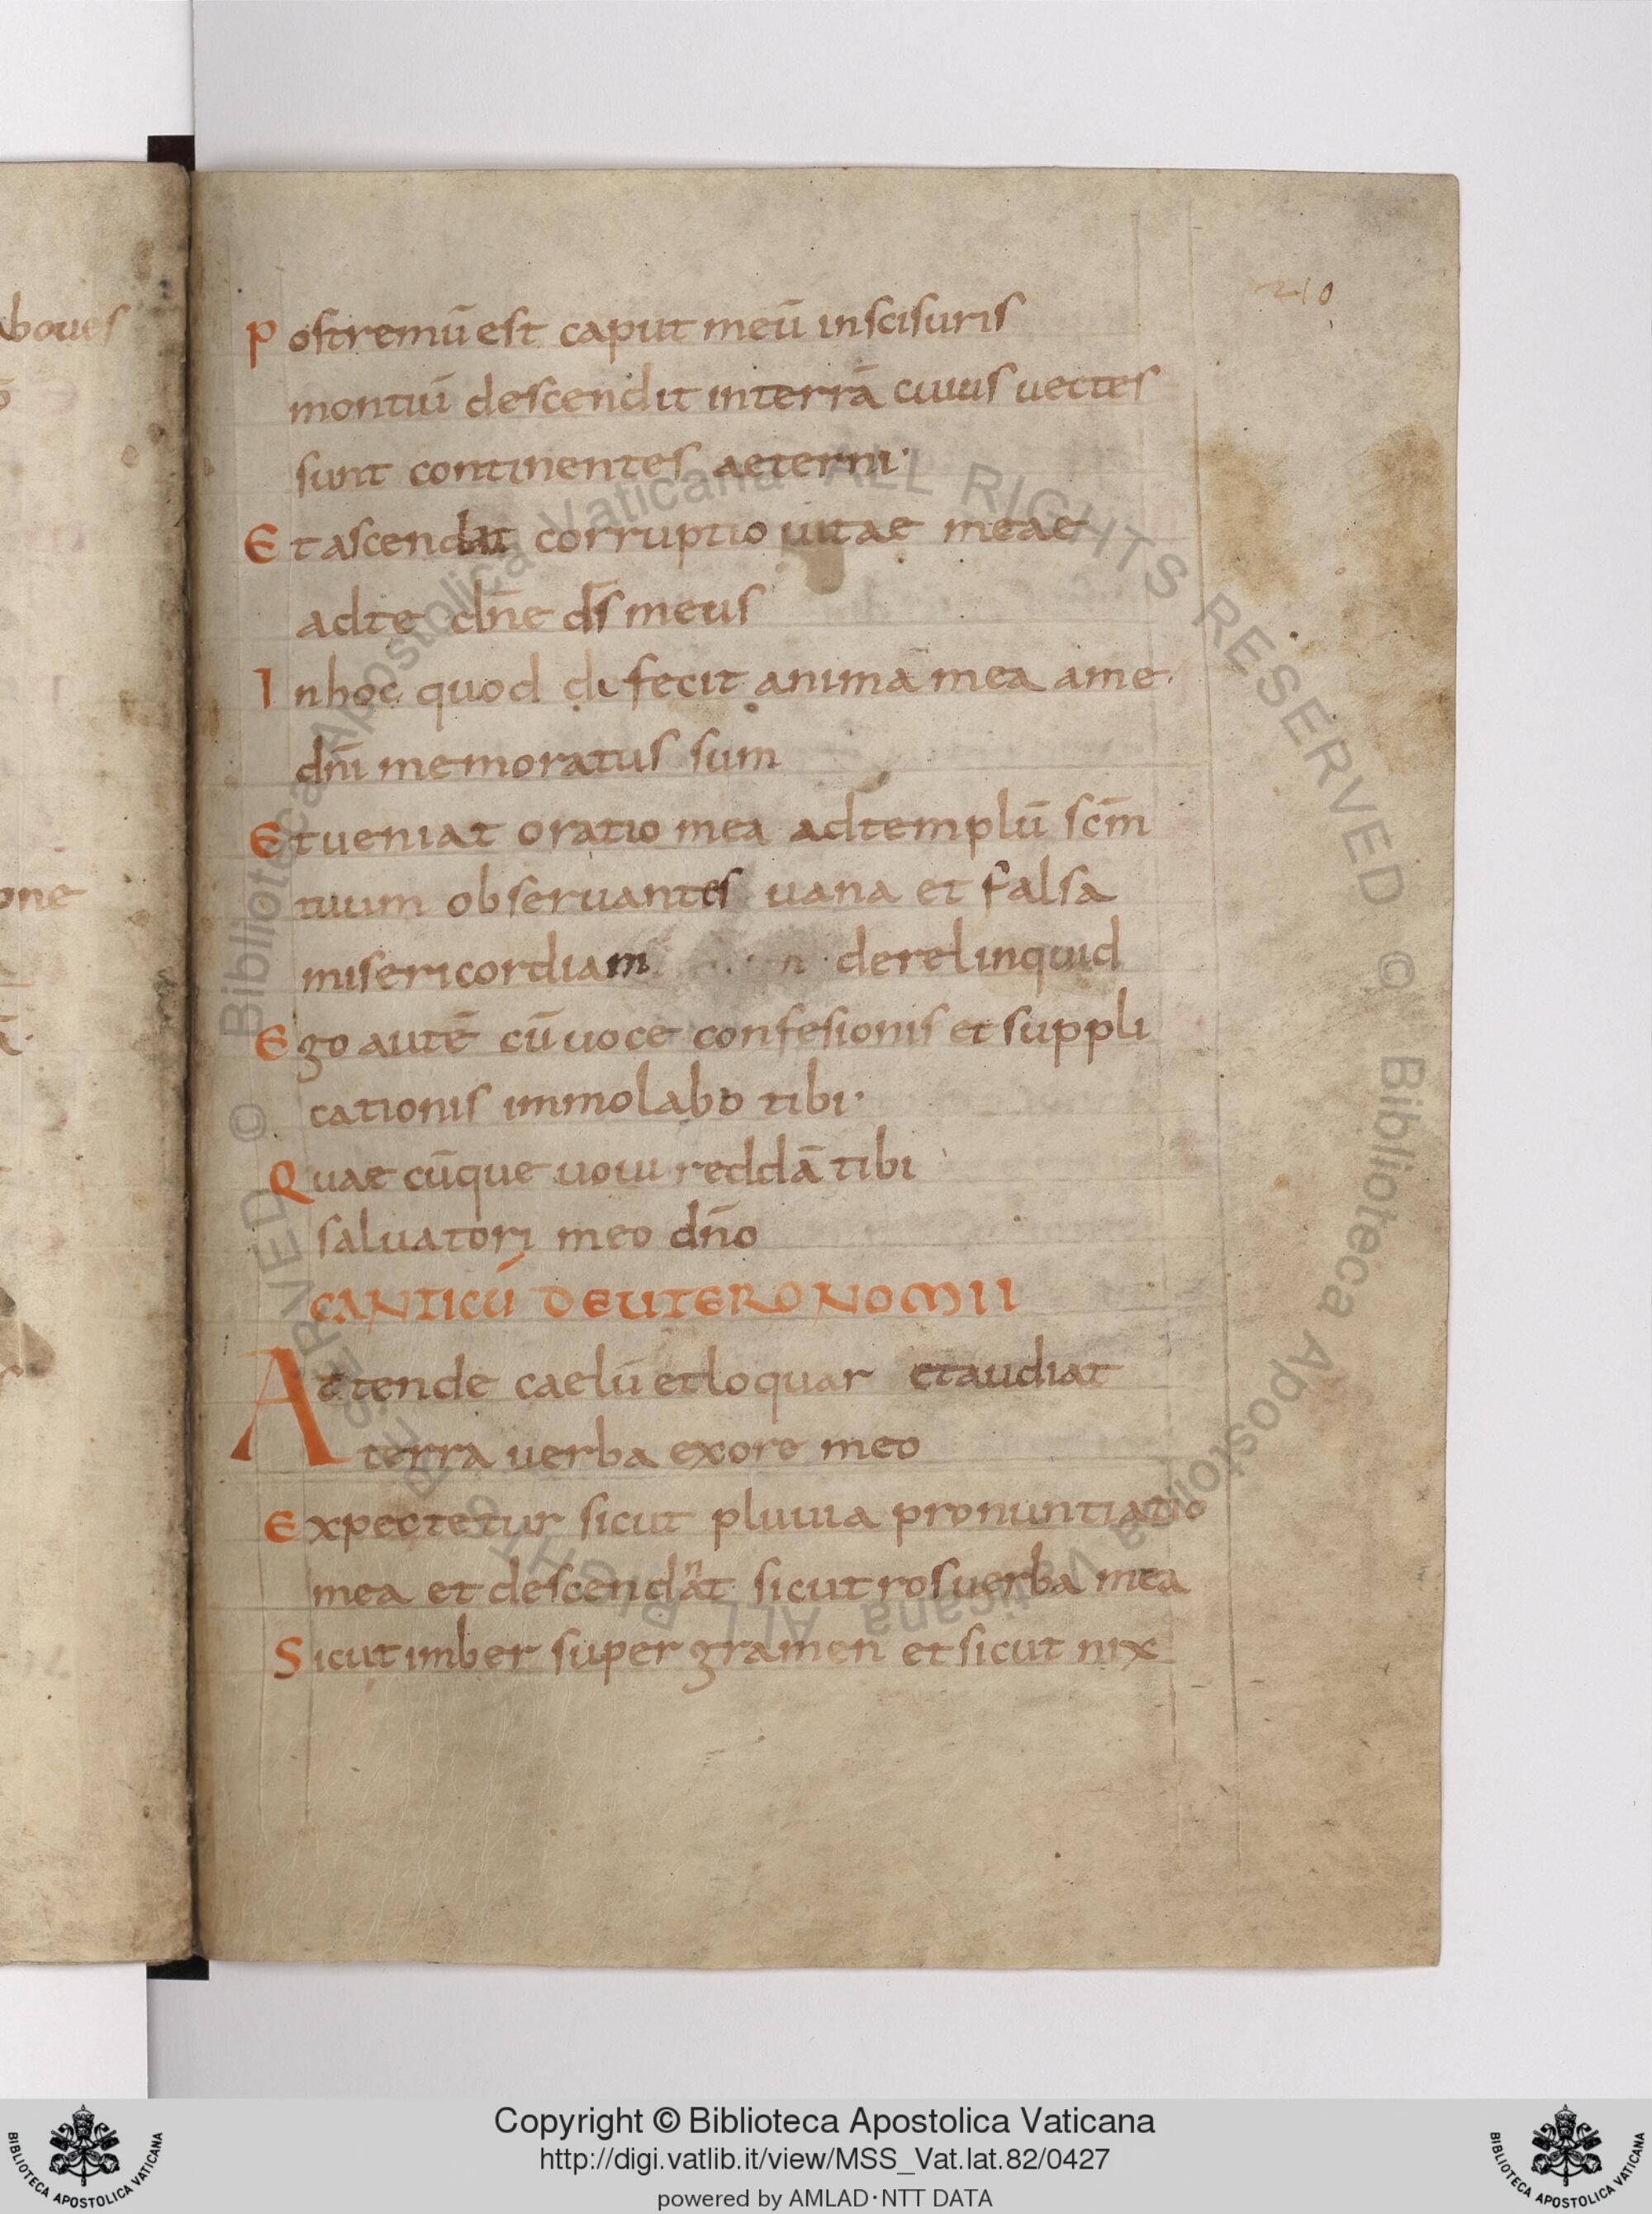 boues
one
210
Postremū est caput meū inscisuris
montiū descendit interrā cuius uectes
sunt continentes aeterni·
Et ascendat corruptio uitae meae
adte dn̄e ds̄ meus
Inhoc quod defecit anima mea ame
dn̄i memoratus sum
Etueniat oratio mea adtemplū sc̄m
tuum obseruantes uana et falsa
misericordiam derelinquid
Ego autē cū uoce confesionis et suppli
cationis immolabo tibi·
Quae cūque uoui reddā tibi
saluatori meo dn̄o
CANTICŪ DEUTERONOMII
Attende caelū etloquar etaudiat
terra uerba exore meo
Expectetur sicut pluuia pronuntiatio
mea et descendaⁿt sicut ros uerba mea
Sicut imber super gramen et sicut nix
© Biblioteca Apostolica Vaticana ALL RIGHTS RESERVED © Biblioteca Apostolica Vaticana ALL RIGHTS RESERVED
Copyright © Biblioteca Apostolica Vaticana
http://digi.vatlib.it/view/MSS_Vat.lat.82/0427
powered by AMLAD·NTT DATA
BIBLIOTECA APOSTOLICA VATICANA
BIBLIOTECA APOSTOLICA VATICANA